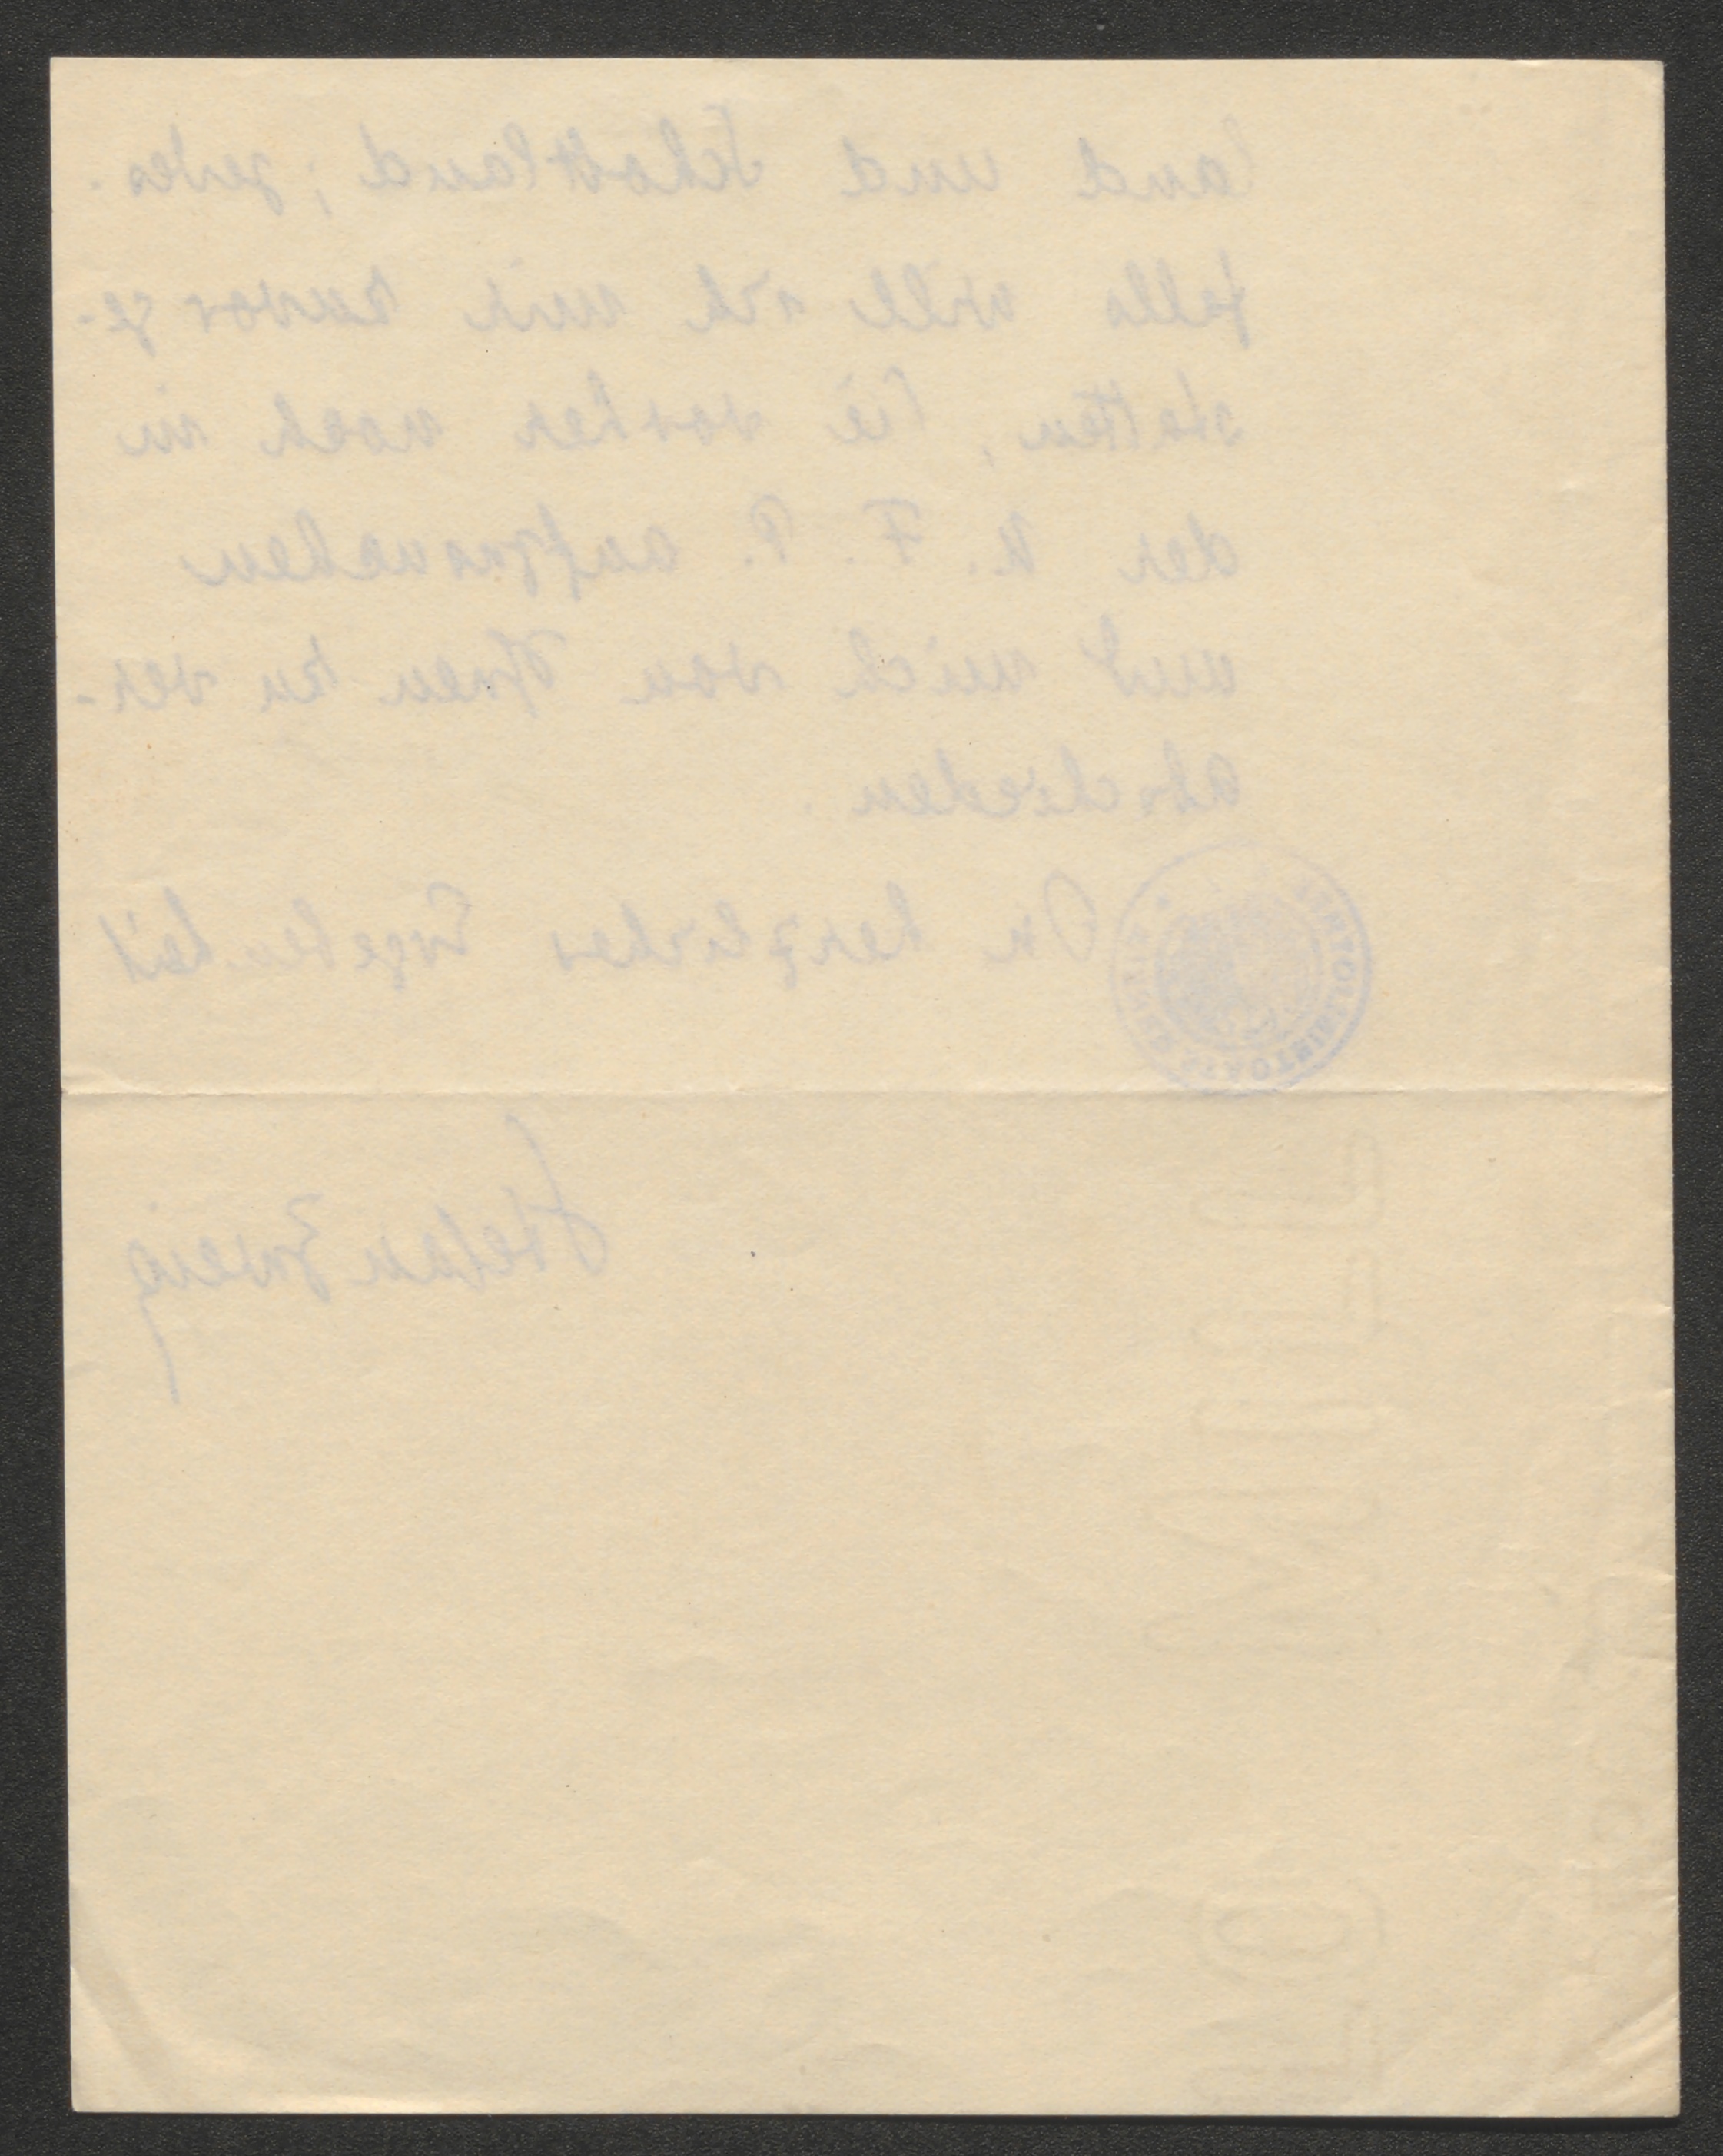 land und Schottland; jeden-
falls will ich mir zuvor ge-
statten, Sie vorher noch in
der N. F. P. aufzusuchen
und mich von Ihnen zu ver-
abschieden.
In herzlicher Ergebenheit
Stefan Zweig
MILL